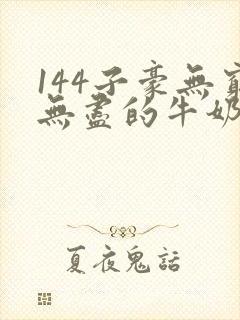 144子豪無窮
無盡的牛奶
夏夜鬼話